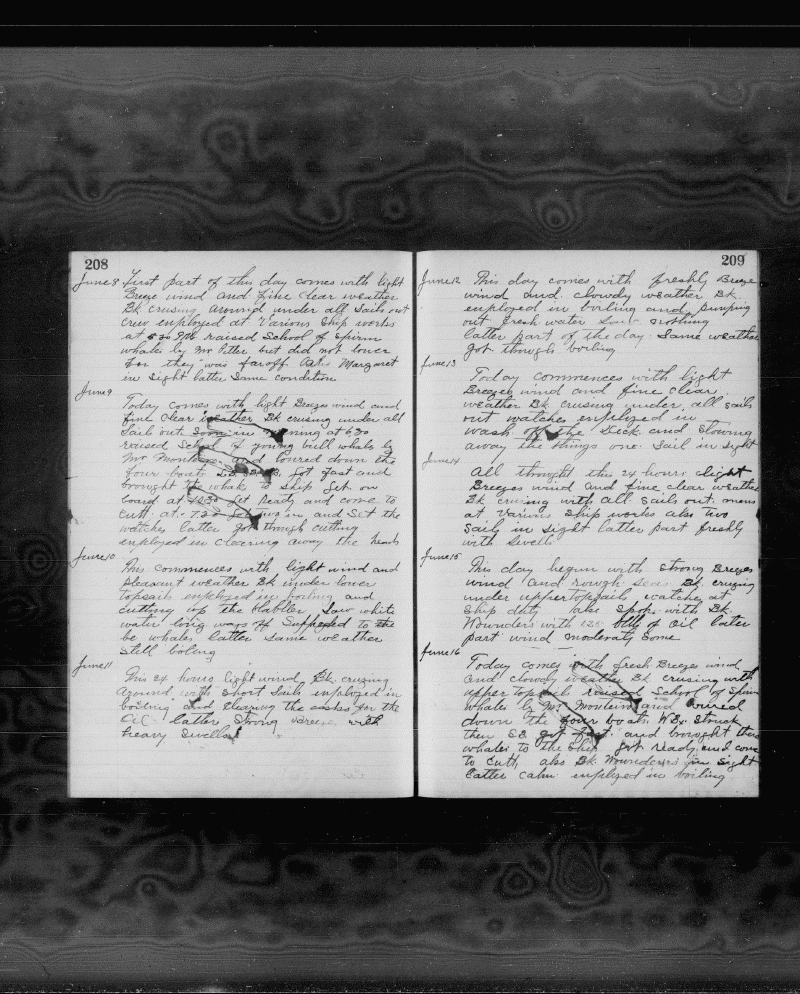 208
June 8 First part of this day comes with light
Breeze wind and fine clear weather
Bk crusing around under all Sails out
crew employed at Various Ship works
at 5 30 PM raised School of Spirm
whales by Mr Peter but did not lower
for they was faroff Bk Margaret
in Sight latter Same condition
June 9
Today comes with light Breezes wind and
fine clear weather Bk crusing under all
Sails out in ning at 6 30
raised School of young bull whales by
Mr and lowred down the
four boat got fast and
brought whale to Ship got on
board at get Ready and come to
cutt at 7.30 and Set the
watches latter got through cutting
employed in clearing away the heads
June 10
This commences with light wind and
pleasant weather Bk under lower
topsails employed in boiling and
cutting up the blabber Saw white
water long ways off Suppoed to the
be whales latter Same weather
Still boiling
June 11
This 24 hours light wind Bk crusing
around with Short Sails employed in
boiling and clearing the casks for the
Oil latter Strong breeze with
heavy Swells
209
June 12 This day comes with freshly Breeze
wind and clowdy weather Bk
employed in boiling and pumping
out fresh water Saw nothing
latter part of the day Same weather
got through boiling
June 13
Today commences with light
Breezes wind and fine clear
weather Bk crusing under all sails
out watches employed in
wash off Deck and Stowing
away the things one Sail in Sight
June 14
All throught this 24 hours light
Breezes wind and fine clear weather
Bk crusing with all Sails out mens
at Various Ship works also two
Sails in Sight latter part freshly
with Swell
June 15
This day begun with Strong Breezes
wind and rough Seas Bk crusing
under uppertopsails watches at
Ship duty also Spok with Bk
Wounders with bbls of Oil later
part wind moderatly Some
June 16
Today comes with fresh Breezes wind
and clowdy weather Bk crusing with
upper topsails raised School of Spirm
whales by Mr and lowred
down the four boats Struck
then got fast and brought
whales to the Ship got ready and come
to Cutt also Bk Wounderers in Sight
latter calm employed in boiling